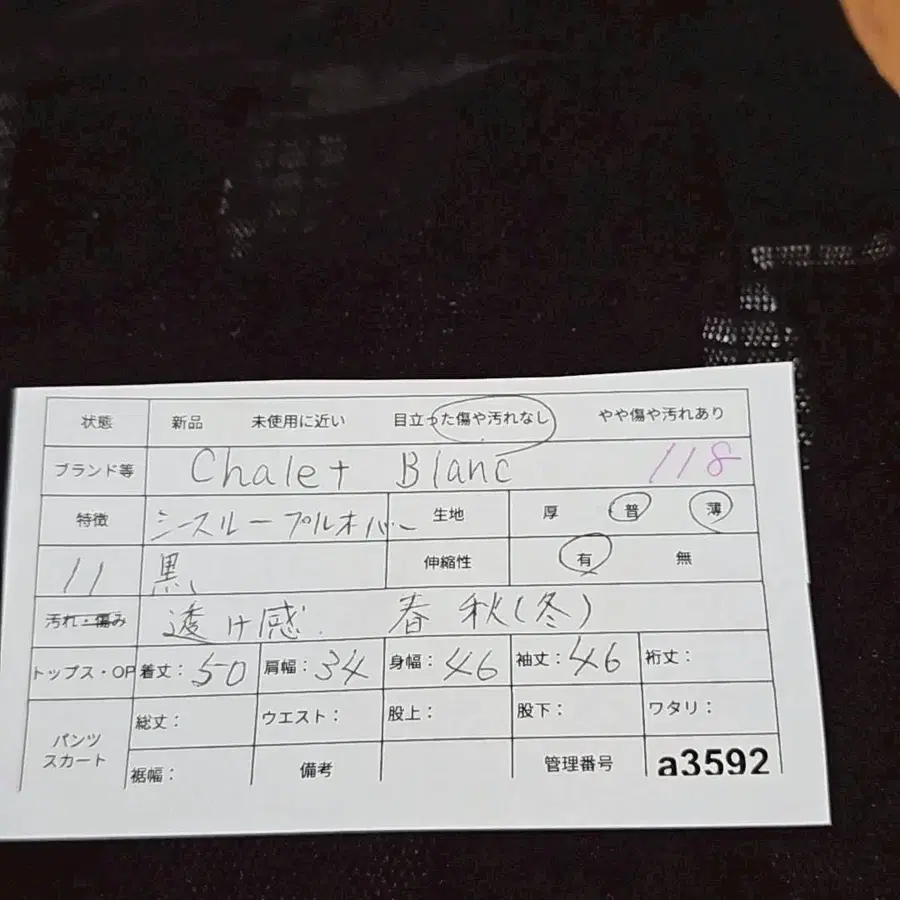 状態 新品 未使用に近い 目立った傷や汚れなし やや傷や汚れあり
ブランド等 Chalet Blanc 118
特徴 シースループルオーバー 生地 厚 普 薄
11 黒 伸縮性 有 無
汚れ・傷み 透け感. 春 秋(冬)
トップス・OP 着丈:50 肩幅:34 身幅:46 袖丈:46 裄丈:
パンツ スカート 総丈: ウエスト: 股上: 股下: ワタリ:
裾幅: 備考 管理番号 a3592